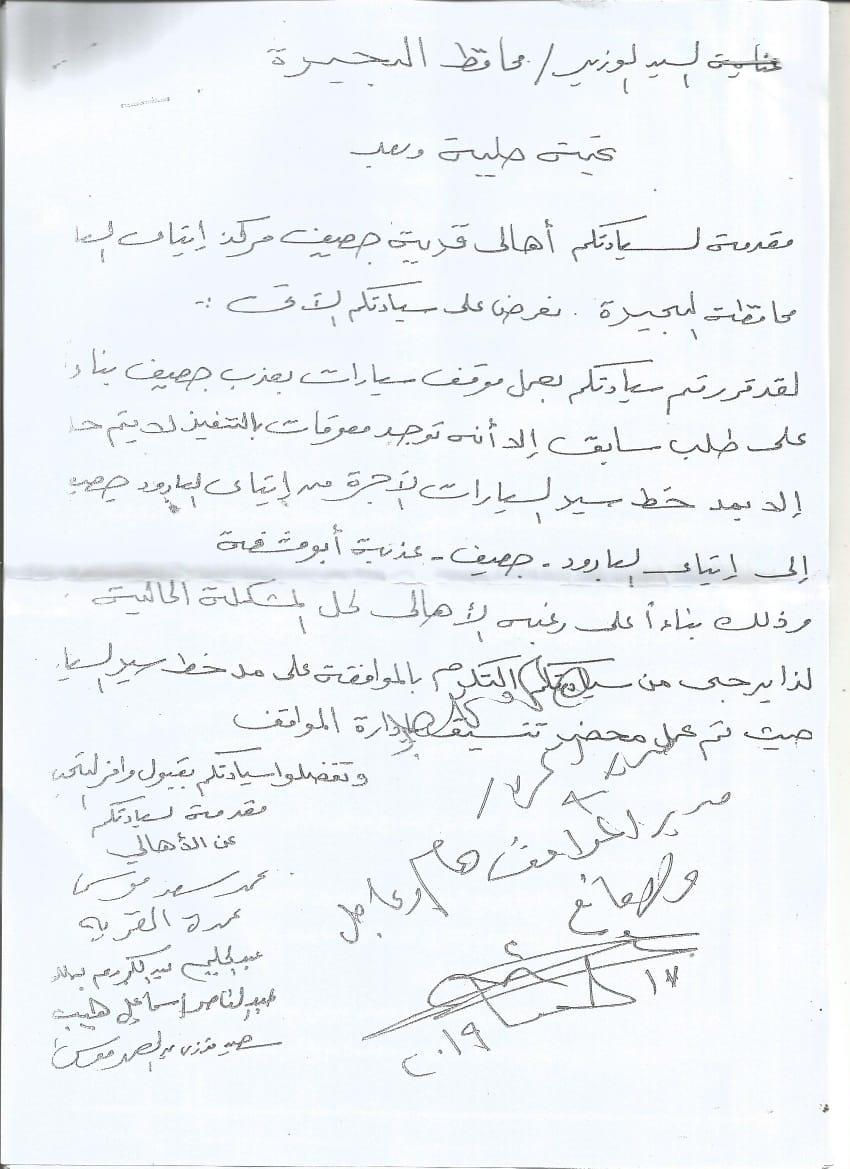 السيد الوزير / محافظ البحيرة
تحية طيبة وبعد
مقدمة لسيادتكم أهالى قرية جصيف مركز إيتاى البا
محافظة البحيرة . نعرض على سيادتكم الآتى :-
لقد قررتم سيادتكم بعمل موقف سيارات بعزب جصيف بناء
على طلب سابق إلا أنه توجد معوقات بالتنفيذ لا يتم حل
إلا بمد خط سير السيارات الأجرة من إيتاى البارود جصيف
إلى إيتاى البارود - جصيف - عزبة أبو مشفة
وذلك بناءاً على رغبة الأهالى لحل المشكلة الحالية
لذا يرجى من سيادتكم التكرم بالموافقة على مد خط سير السيا
حيث تم عمل محضر تنسيق إدارة المواقف
وتفضلوا سيادتكم بقبول وافر التحية
مقدمة لسيادتكم
عن الأهالي
محمد سعد موسى
عمدة القرية
عبد الحليم عبد الكريم
عبد الناصر إسماعيل
مدير المواقف هام وعاجل
١٧
٢٠١٩